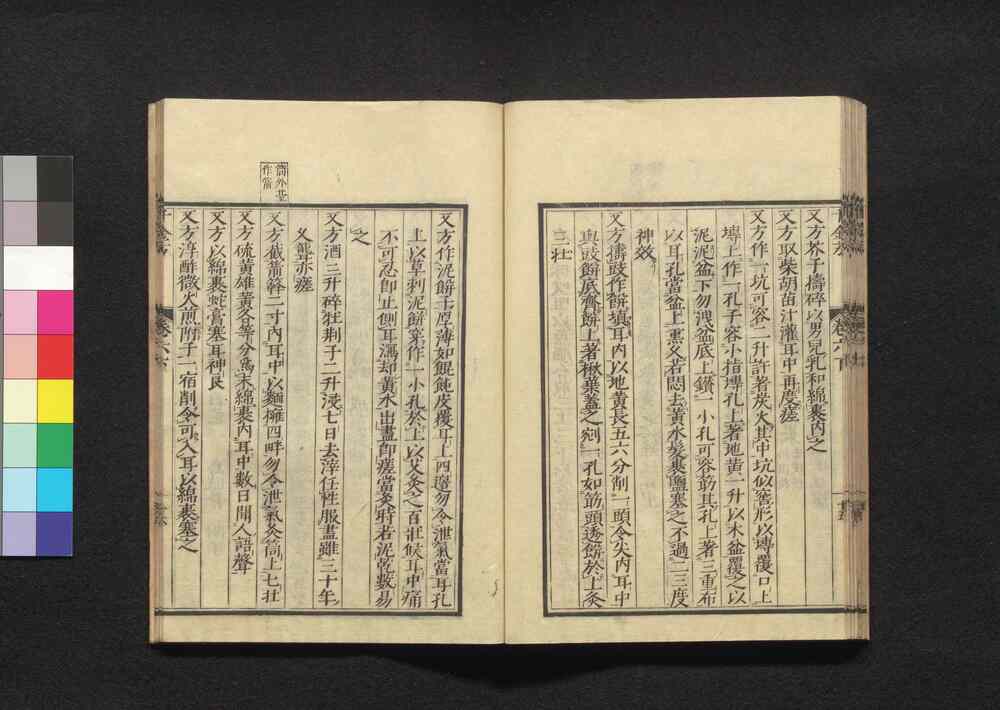 又方芥子擣碎以男兒乳和綿裹内之
又方取柴胡苗汁灌耳中再度瘥
又方作一坑可容二升許著炭火其中坑似窖形以塼覆口上
塼上作一孔子容小指塼孔上著地黄一升以木盆覆之以
泥泥盆下勿洩盆底上鑽一小孔可容筯其孔上著三重布
以耳孔當盆上熏久若悶去黄水髮裹鹽塞之不過二三度
神效
又方擣豉作餅塡耳内以地黄長五六分削一頭令尖内耳中
與豉餅底齊餅上著楸葉蓋之剜一孔如筯頭透餅於上灸
三壯
筒外臺
作箇
又方作泥餅子厚薄如餛飩皮覆耳上四邊勿令泄氣當耳孔
上以草刺泥餅穿作一小孔於上以艾灸之百壯候耳中痛
不可忍卽止側耳瀉却黄水出盡卽瘥當灸時若泥乾數易
之
又方酒三升碎牡荆子二升浸七日去滓任性服盡雖三十年
久聾亦瘥
又方截箭簳二寸内耳中以麵擁四畔勿令泄氣灸筒上七壯
又方硫黄雄黄各等分爲末綿裹内耳中數日聞人語聲
又方以綿裹蛇膏塞耳神良
又方淳酢微火煎附子一宿削令可入耳以綿裹塞之